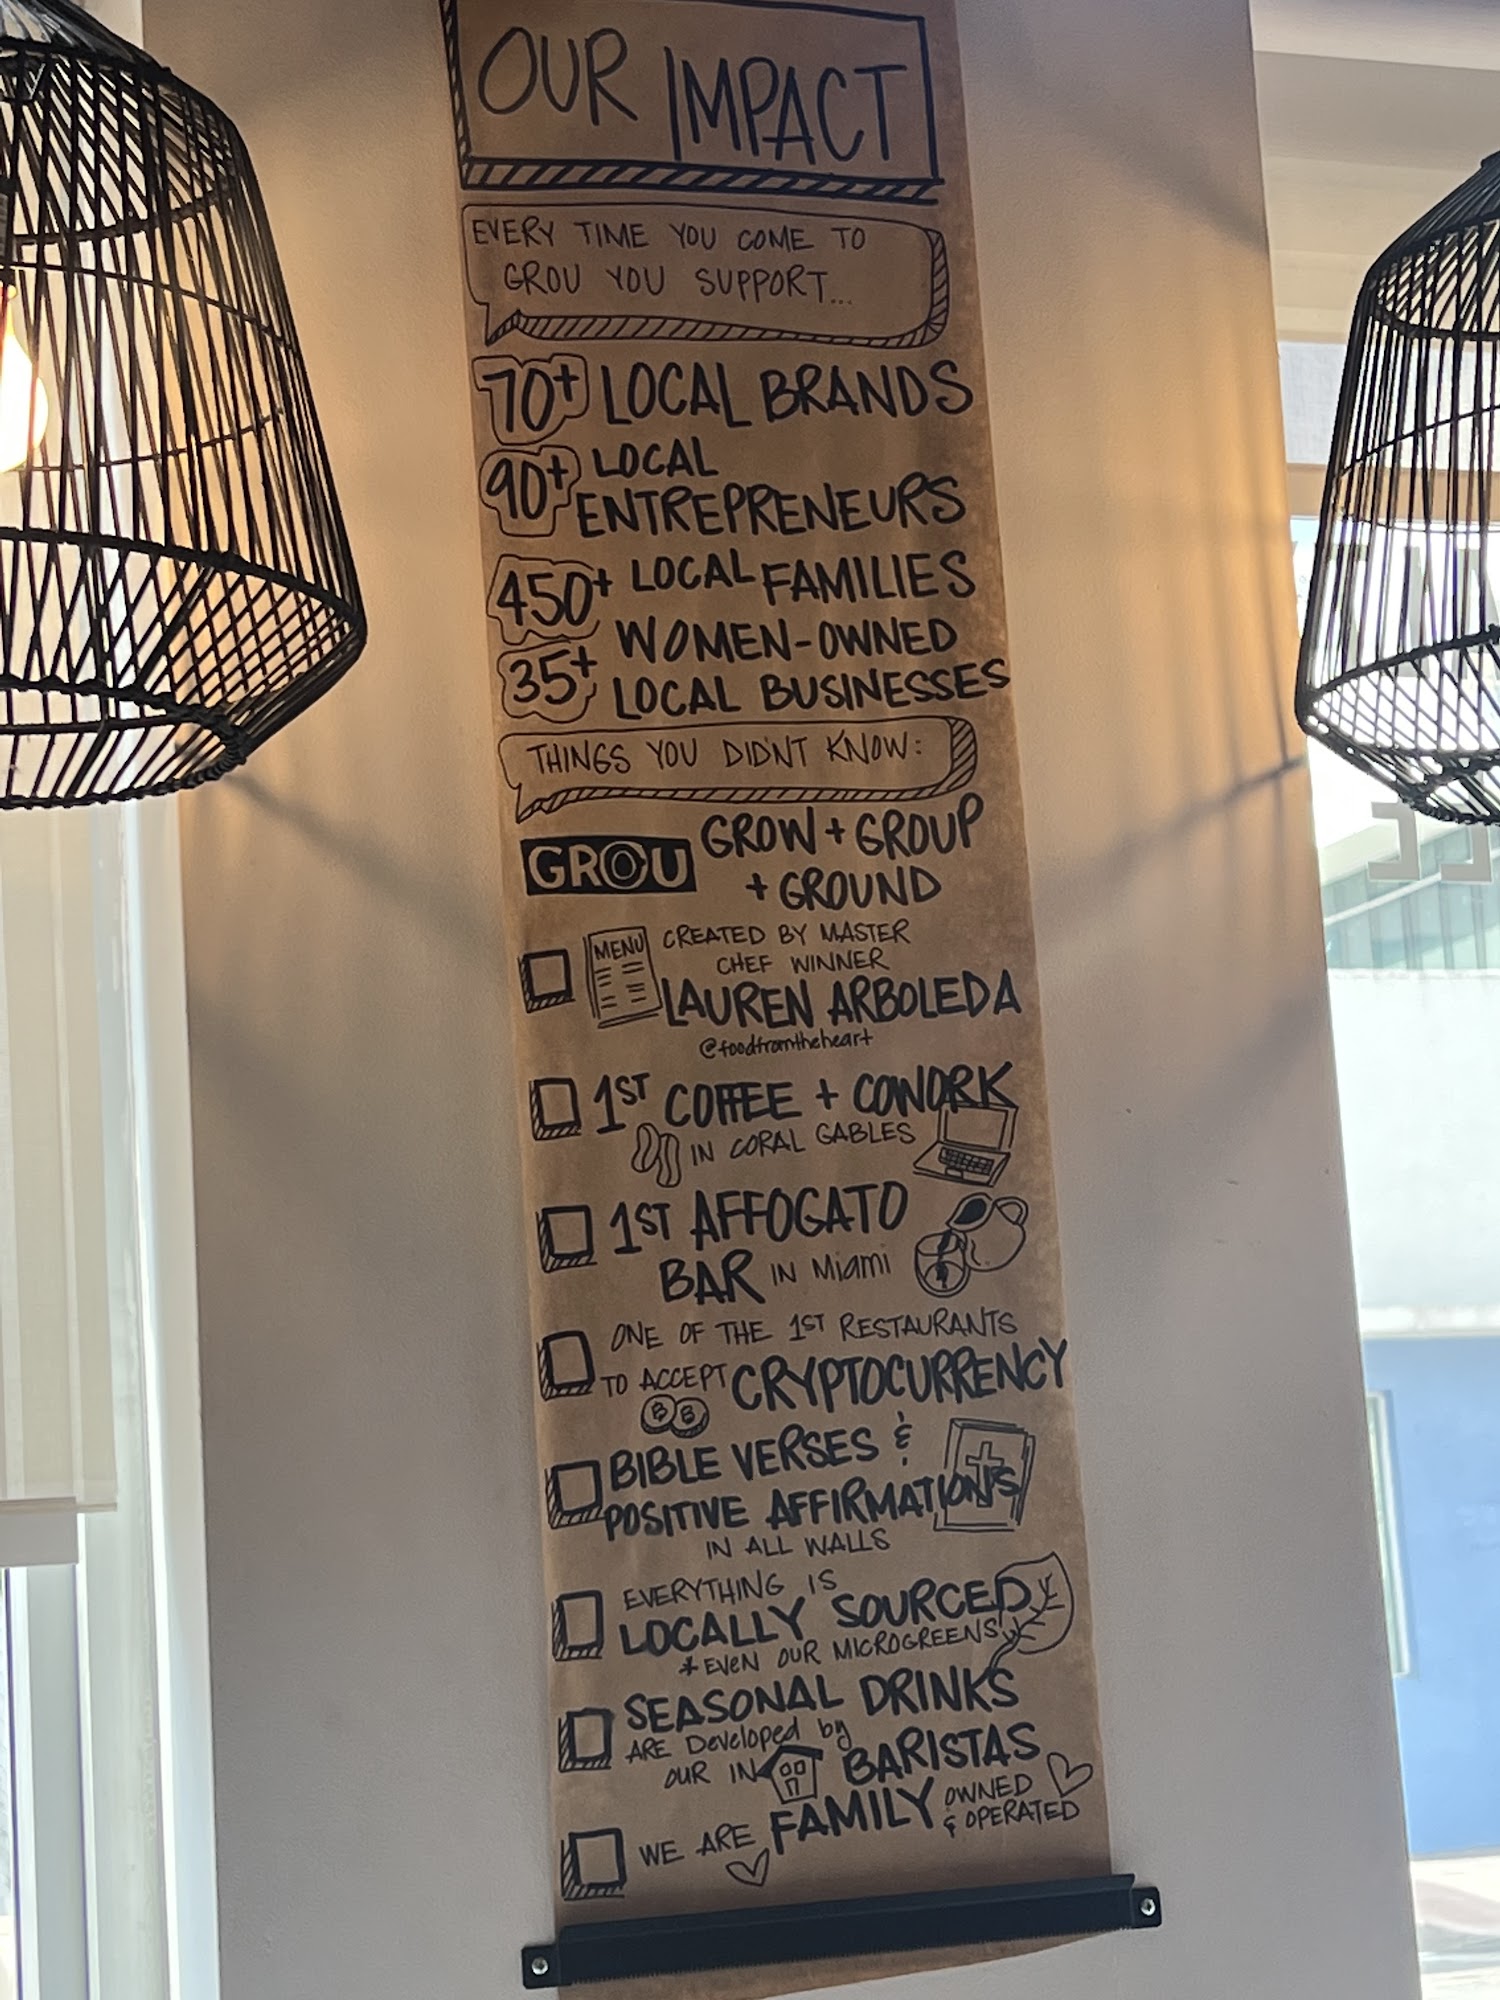 OUR IMPACT
EVERY TIME YOU COME TO
GROU YOU SUPPORT...
70+ LOCAL BRANDS
90+ LOCAL
ENTREPRENEURS
450+ LOCAL FAMILIES
35+ WOMEN-OWNED
LOCAL BUSINESSES
THINGS YOU DIDN'T KNOW:
GROU GROW + GROUP
+ GROUND
MENU
CREATED BY MASTER
CHEF WINNER
LAUREN ARBOLEDA
@foodfromtheheart
1ST COFFEE + COWORK
IN CORAL GABLES
1ST AFFOGATO
BAR IN Miami
ONE OF THE 1ST RESTAURANTS
TO ACCEPT CRYPTOCURRENCY
B B
BIBLE VERSES &
POSITIVE AFFIRMATIONS
IN ALL WALLS
EVERYTHING IS
LOCALLY SOURCED
*EVEN OUR MICROGREENS
SEASONAL DRINKS
ARE Developed by
OUR IN BARISTAS
WE ARE FAMILY OWNED
& OPERATED